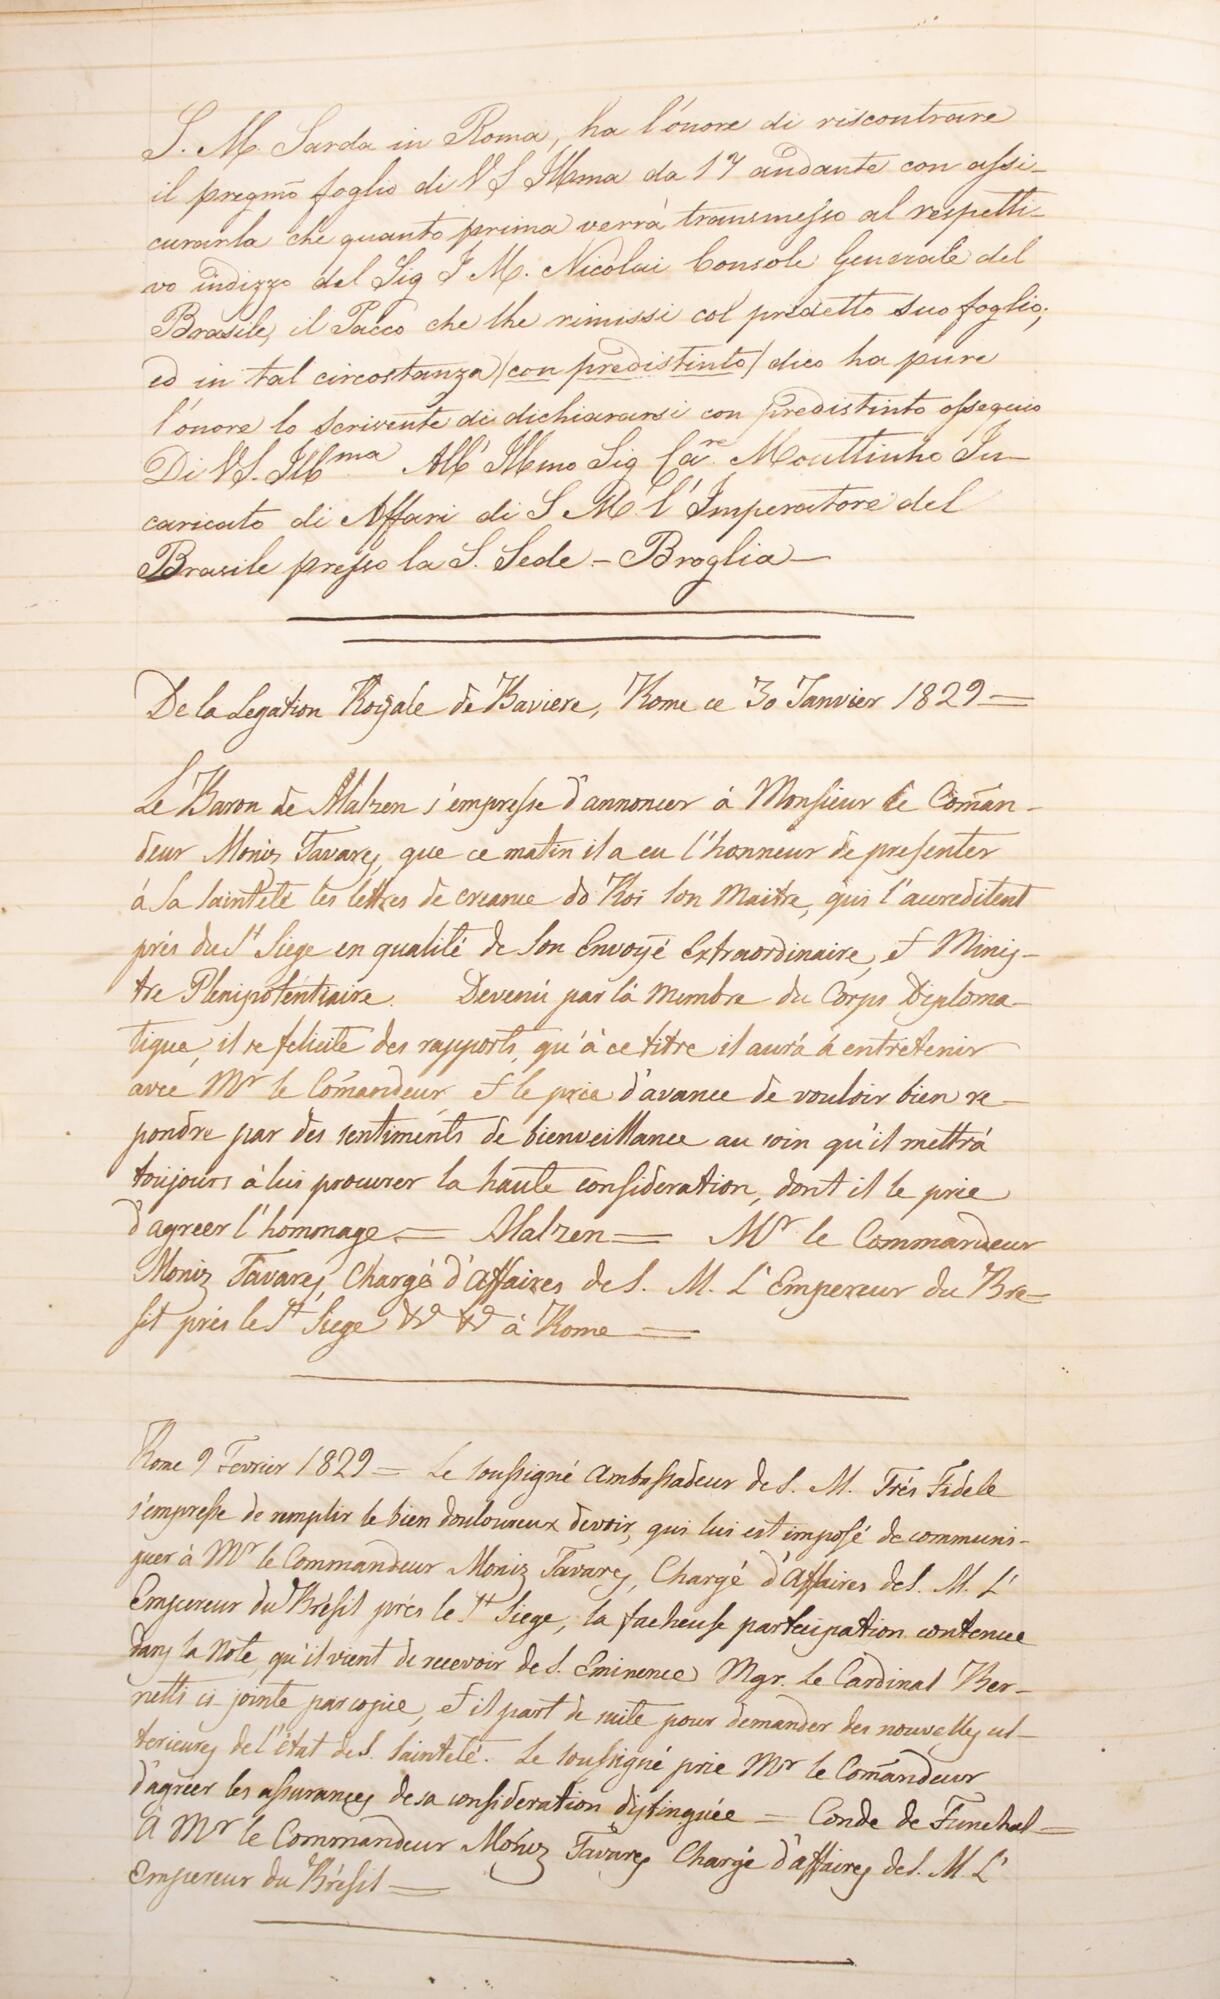 S. M. Sarda in Roma, ha l'onore di riscontrare
il pregmo foglio di V S Illma da 17 andante con assi-
curarla che quanto prima verrà transmesso al respetti-
vo indizzo del Sig I M. Nicolai Console Generale del
Brasile, il Pacco che lhe rimissi col predetto suo foglio;
ed in tal circostanza /con predistinto/ dico ha pure
l'onore lo scrivente di dichiararsi con predistinto ossequio
Di V S. Illma All' Illmo Sig Care Mouttinho In-
caricato di Affari di S M l'Imperatore del
Brasile presso la S. Sede - Broglia -
De la Legation Royale de Baviere, Rome ce 30 Janvier 1829 =
Le Baron de Malzen s'empresse d'annoncer à Monsieur le Coman-
deur Moniz Tavares, que ce matin il a eu l'honneur de presenter
à Sa Sainteté les lettres de creance do Roi son Maitre, qui l'accreditent
prés du St Siege en qualité de Son Envoyé Extraordinaire, et Minis-
tre Plenipotentiaire. Devenu par là Membre du Corps Diploma-
tique, il se felicite des rapports, qu'à ce titre il aurà à entretenir
avec Mr le Comandeur et le prie d'avance de vouloir bien re-
pondre par des sentiments de bienveillance au soin qu'il mettrà
toujours à lui procurer la haute consideration, dont il le prie
d'agreer l'hommage. = Malzen = Mr le Commandeur
Moniz Tavares, Chargé d'Affaires de S. M. L'Empereur du Bre-
sil prés le St Siege & & à Rome =
Rome 9 Fevrier 1829 = Le soussigné Ambassadeur de S. M. Trés Fidele
s'empresse de remplir le bien douloureux devoir, qui lui est imposé de communi-
quer à Mr le Commandeur Moniz Tavares, Chargé d'Affaires de S. M. L'
Empereur du Brésil prés le St Siege, la facheuse participation contenue
dans la Note, qu'il vient de recevoir de S. Eminence Mgr. Le Cardinal Ber-
netti ci jointe par copie, et il part de suite pour demander des nouvelles ul-
terieures de l'état de S. Sainteté. Le soussigné prie Mr le Comandeur
d'agréer les assurances de sa consideration distinguée = Conde de Funchal =
À Mr le Commandeur Moniz Tavares Chargé d'affaires de S. M. L'
Empereur du Brésil =